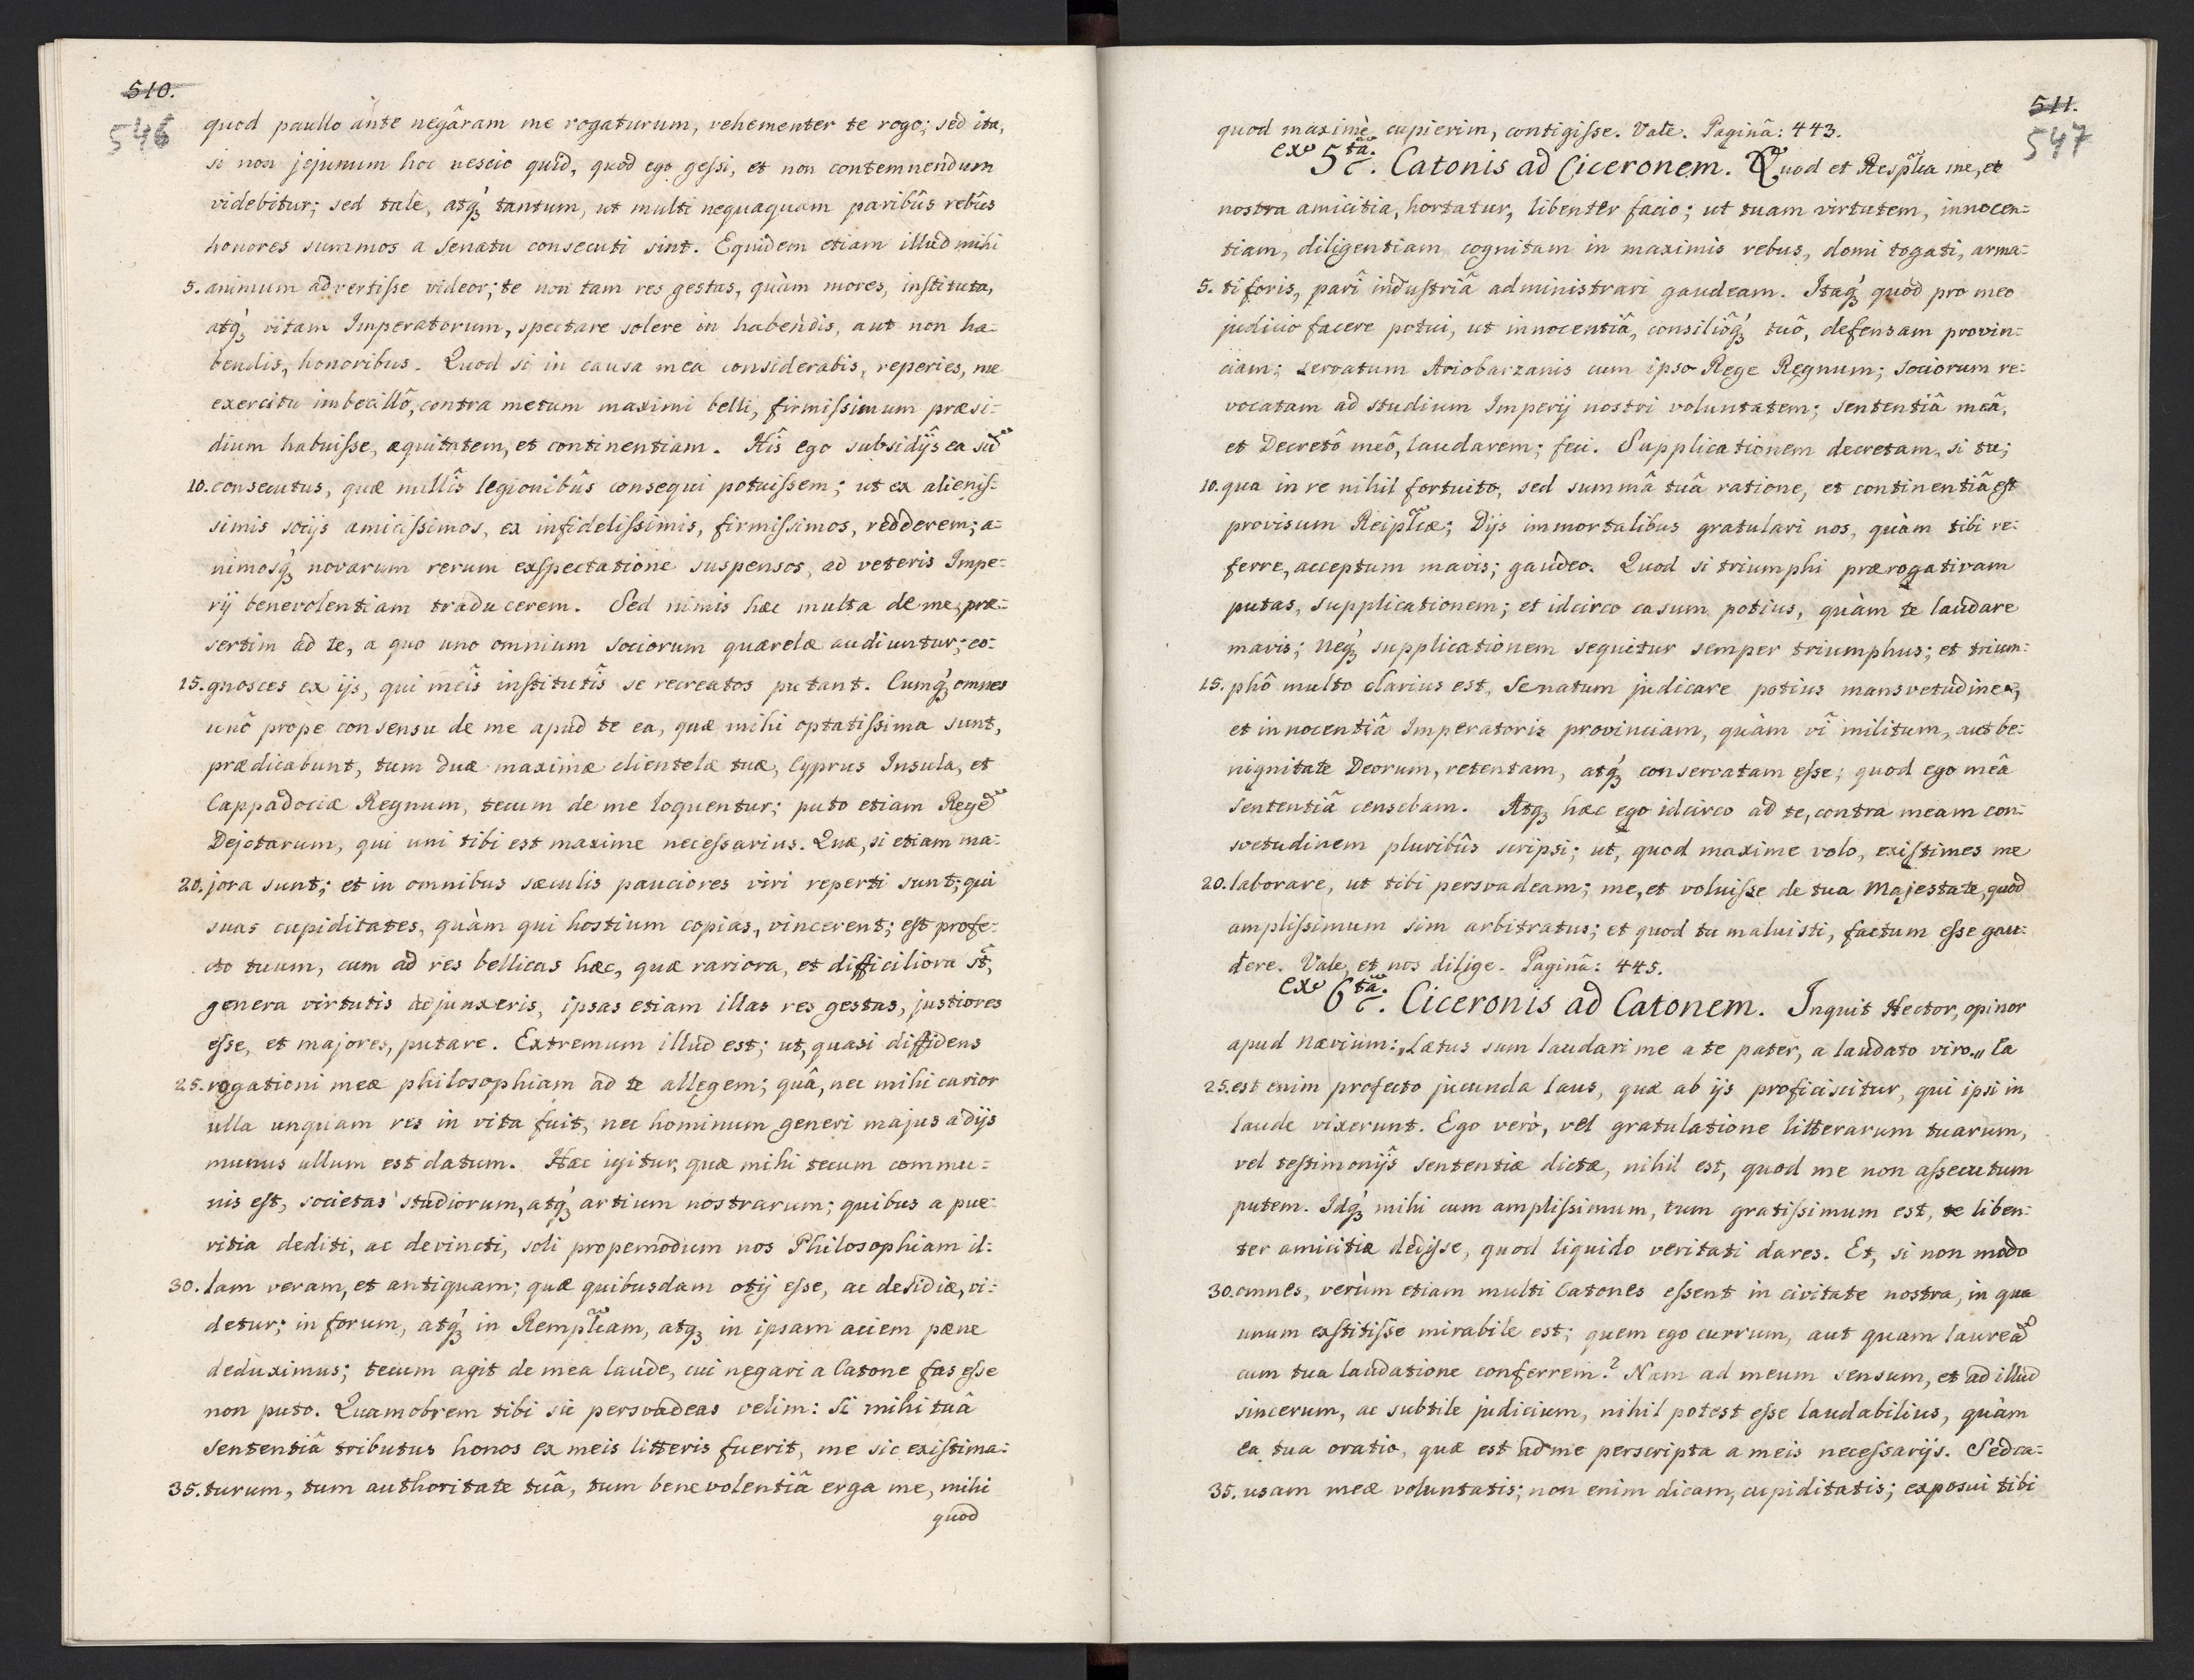 510.
546
quod paullo ante negâram me rogaturum, vehementer te rogo; sed ita,
si non jejunum hoc nescio quid, quod ego gessi, et non contemnendum
videbitur; sed tale, atq́ꝫ tantum, ut multi nequaquam paribûs rebûs
honores summos a Senatu consecuti sint. Equidem etiam illud mihi
5. animum advertisse videor; te non tam res gestas, quàm mores, instituta,
atq́ꝫ vitam Imperatorum, spectare solere in habendis, aut non ha=
bendis, honoribus. Quod si in causa mea considerabis, reperies, me
exercitu imbecillô, contra metum maximi belli, firmissimum præsi=
dium habuisse, æquitatem, et continentiam. Hîs ego subsidijs ea sũ
10. consecutus, quæ nullîs legionibûs consequi potuissem; ut ex alienis=
simis socijs amicissimos, ex infidelissimis, firmissimos, redderem; a=
nimosq́ꝫ novarum rerum exspectatione suspensos, ad veteris Impe=
rij benevolentiam traducerem. Sed nimis hæc multa de me, præ=
sertim ad te, a quo uno omnium sociorum quærelæ audiuntur; co=
15. gnosces ex ijs, qui meîs institutîs se recreatos putant. Cumq́ꝫ omnes
unô prope consensu de me apud te ea, quæ mihi optatissima sunt,
prædicabunt, tum duæ maximæ clientelæ tuæ, Cyprus Insula, et
Cappadociæ Regnum, tecum de me loquentur; puto etiam Regẽ
Dejotarum, qui uni tibi est maxime necessarius. Quæ, si etiam ma=
20. jora sunt; et in omnibus sæculis pauciores viri reperti sunt; qui
suas cupiditates, quàm qui hostium copias, vincerent; est profe=
cto tuum, cum ad res bellicas hæc, quæ rariora, et difficiliora st̃,
genera virtutis adjunxeris, ipsas etiam illas res gestas, justiores
esse, et majores, putare. Extremum illud est; ut, quasi diffidens
25. rogationi meæ philosophiam ad te allegem; quâ, nec mihi carior
ulla unquam res in vita fuit, nec hominum generi majus a dijs
munus ullum est datum. Hæc igitur, quæ mihi tecum commu=
nis est, societas studiorum, atq́ꝫ artium nostrarum; quibus a pue=
ritia dediti, ac devincti, soli propemodum nos Philosophiam il=
30. lam veram, et antiquam; quæ quibusdam otij esse, ac desidiæ, vi=
detur; in forum, atq́ꝫ in Remplĩcam, atqꝫ in ipsam aciem pæne
deduximus; tecum agit de mea laude, cui negari a Catone fas esse
non puto. Quamobrem tibi sic persvadeas velim: Si mihi tuâ
sententiâ tributus honos ex meis litteris fuerit, me sic existima=
35. turum, tum authoritate tuâ, tum benevolentiâ erga me, mihi
quod
511.
547
quod maximè cupierim, contigisse. Vale. Paginâ: 443.
ex 5ta. Catonis ad Ciceronem. Quod et Resplĩca me, et
nostra amicitia, hortatur, libenter facio; ut tuam virtutem, innocen=
tiam, diligentiam cognitam in maximis rebus, domi togati, arma=
5. ti foris, parî industriâ administrari gaudeam. Itaq́ꝫ quod pro meo
judicio facere potui, ut innocentiâ, consiliôq́ꝫ tuô, defensam provin=
ciam; servatum Ariobarzanis cum ipso Rege Regnum; sociorum re=
vocatam ad studium Imperij nostri voluntatem; sententiâ meâ,
et Decretô meô, laudarem; feci. Supplicationem decretam, si tu;
10. qua in re nihil fortuito, sed summâ tuâ ratione, et continentiâ est
provisum Reiplĩcæ; Dijs immortalibus gratulari nos, quàm tibi re=
ferre, acceptum mavis; gaudeo. Quod si triumphi prærogativam
putas, supplicationem; et idcirco casum potius, quàm te laudare
mavis; neq́ꝫ supplicationem sequitur semper triumphus; et trium=
15. phô multo clarius est, Senatum judicare potius mansvetudine,
et innocentiâ Imperatoris provinciam, quàm vî militum, aut be=
nignitate Deorum, retentam, atq́ꝫ conservatam esse; quod ego meâ
sententiâ censebam. Atqꝫ hæc ego idcirco ad te, contra meam con=
svetudinem pluribûs scripsi; ut, quod maxime volo, existimes me
20. laborare, ut tibi persvadeam; me, et voluisse de tua Majestate, quod
amplissimum sim arbitratus; et quod tu maluisti, factum esse gau=
dere. Vale, et nos dilige. Paginâ: 445.
ex 6ta. Ciceronis ad Catonem. Inquit Hector, opinor
apud Nævium: „Lætus sum laudari me a te pater, a laudato viro.„ Ea
25. est enim profecto jucunda laus, quæ ab ijs proficiscitur, qui ipsi in
laude vixerunt. Ego verò, vel gratulatione litterarum tuarum,
vel testimonijs sententiæ dictæ, nihil est, quod me non assecutum
putem. Idq́ꝫ mihi cum amplissimum, tum gratissimum est, te liben=
ter amicitiæ dedisse, quod liquido veritati dares. Et, si non modo
30. omnes, verùm etiam multi Catones essent in civitate nostra, in qua
unum exstitisse mirabile est; quem ego currum, aut quam laureã
cum tua laudatione conferrem? Nam ad meum sensum, et ad illud
sincerum, ac subtile judicium, nihil potest esse laudabilius, quàm
ea tua oratio, quæ est ad me perscripta a meis necessarijs. Sed ca=
35. usam meæ voluntatis; non enim dicam, cupiditatis; exposui tibi